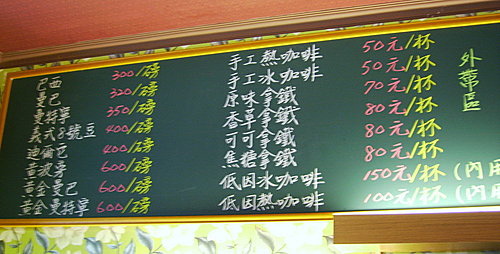 巴西 300/磅
曼巴 320/磅
曼特寧 350/磅
義式8號豆 400/磅
迦佩巴 400/磅
黃波旁 600/磅
黃金曼巴 600/磅
黃金曼特寧 600/磅
手工熱咖啡 50元/杯
手工冰咖啡 50元/杯
原味拿鐵 70元/杯
香草拿鐵 80元/杯
可可拿鐵 80元/杯
焦糖拿鐵 80元/杯
低因冰咖啡 150元/杯(內用
低因熱咖啡 100元/杯(內用
外帶區